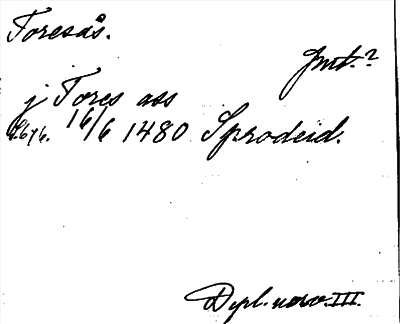 Toresås.
Jmt.?
j Tores ass
16/6 1480 Sprodeid.
Dipl. norv. III.